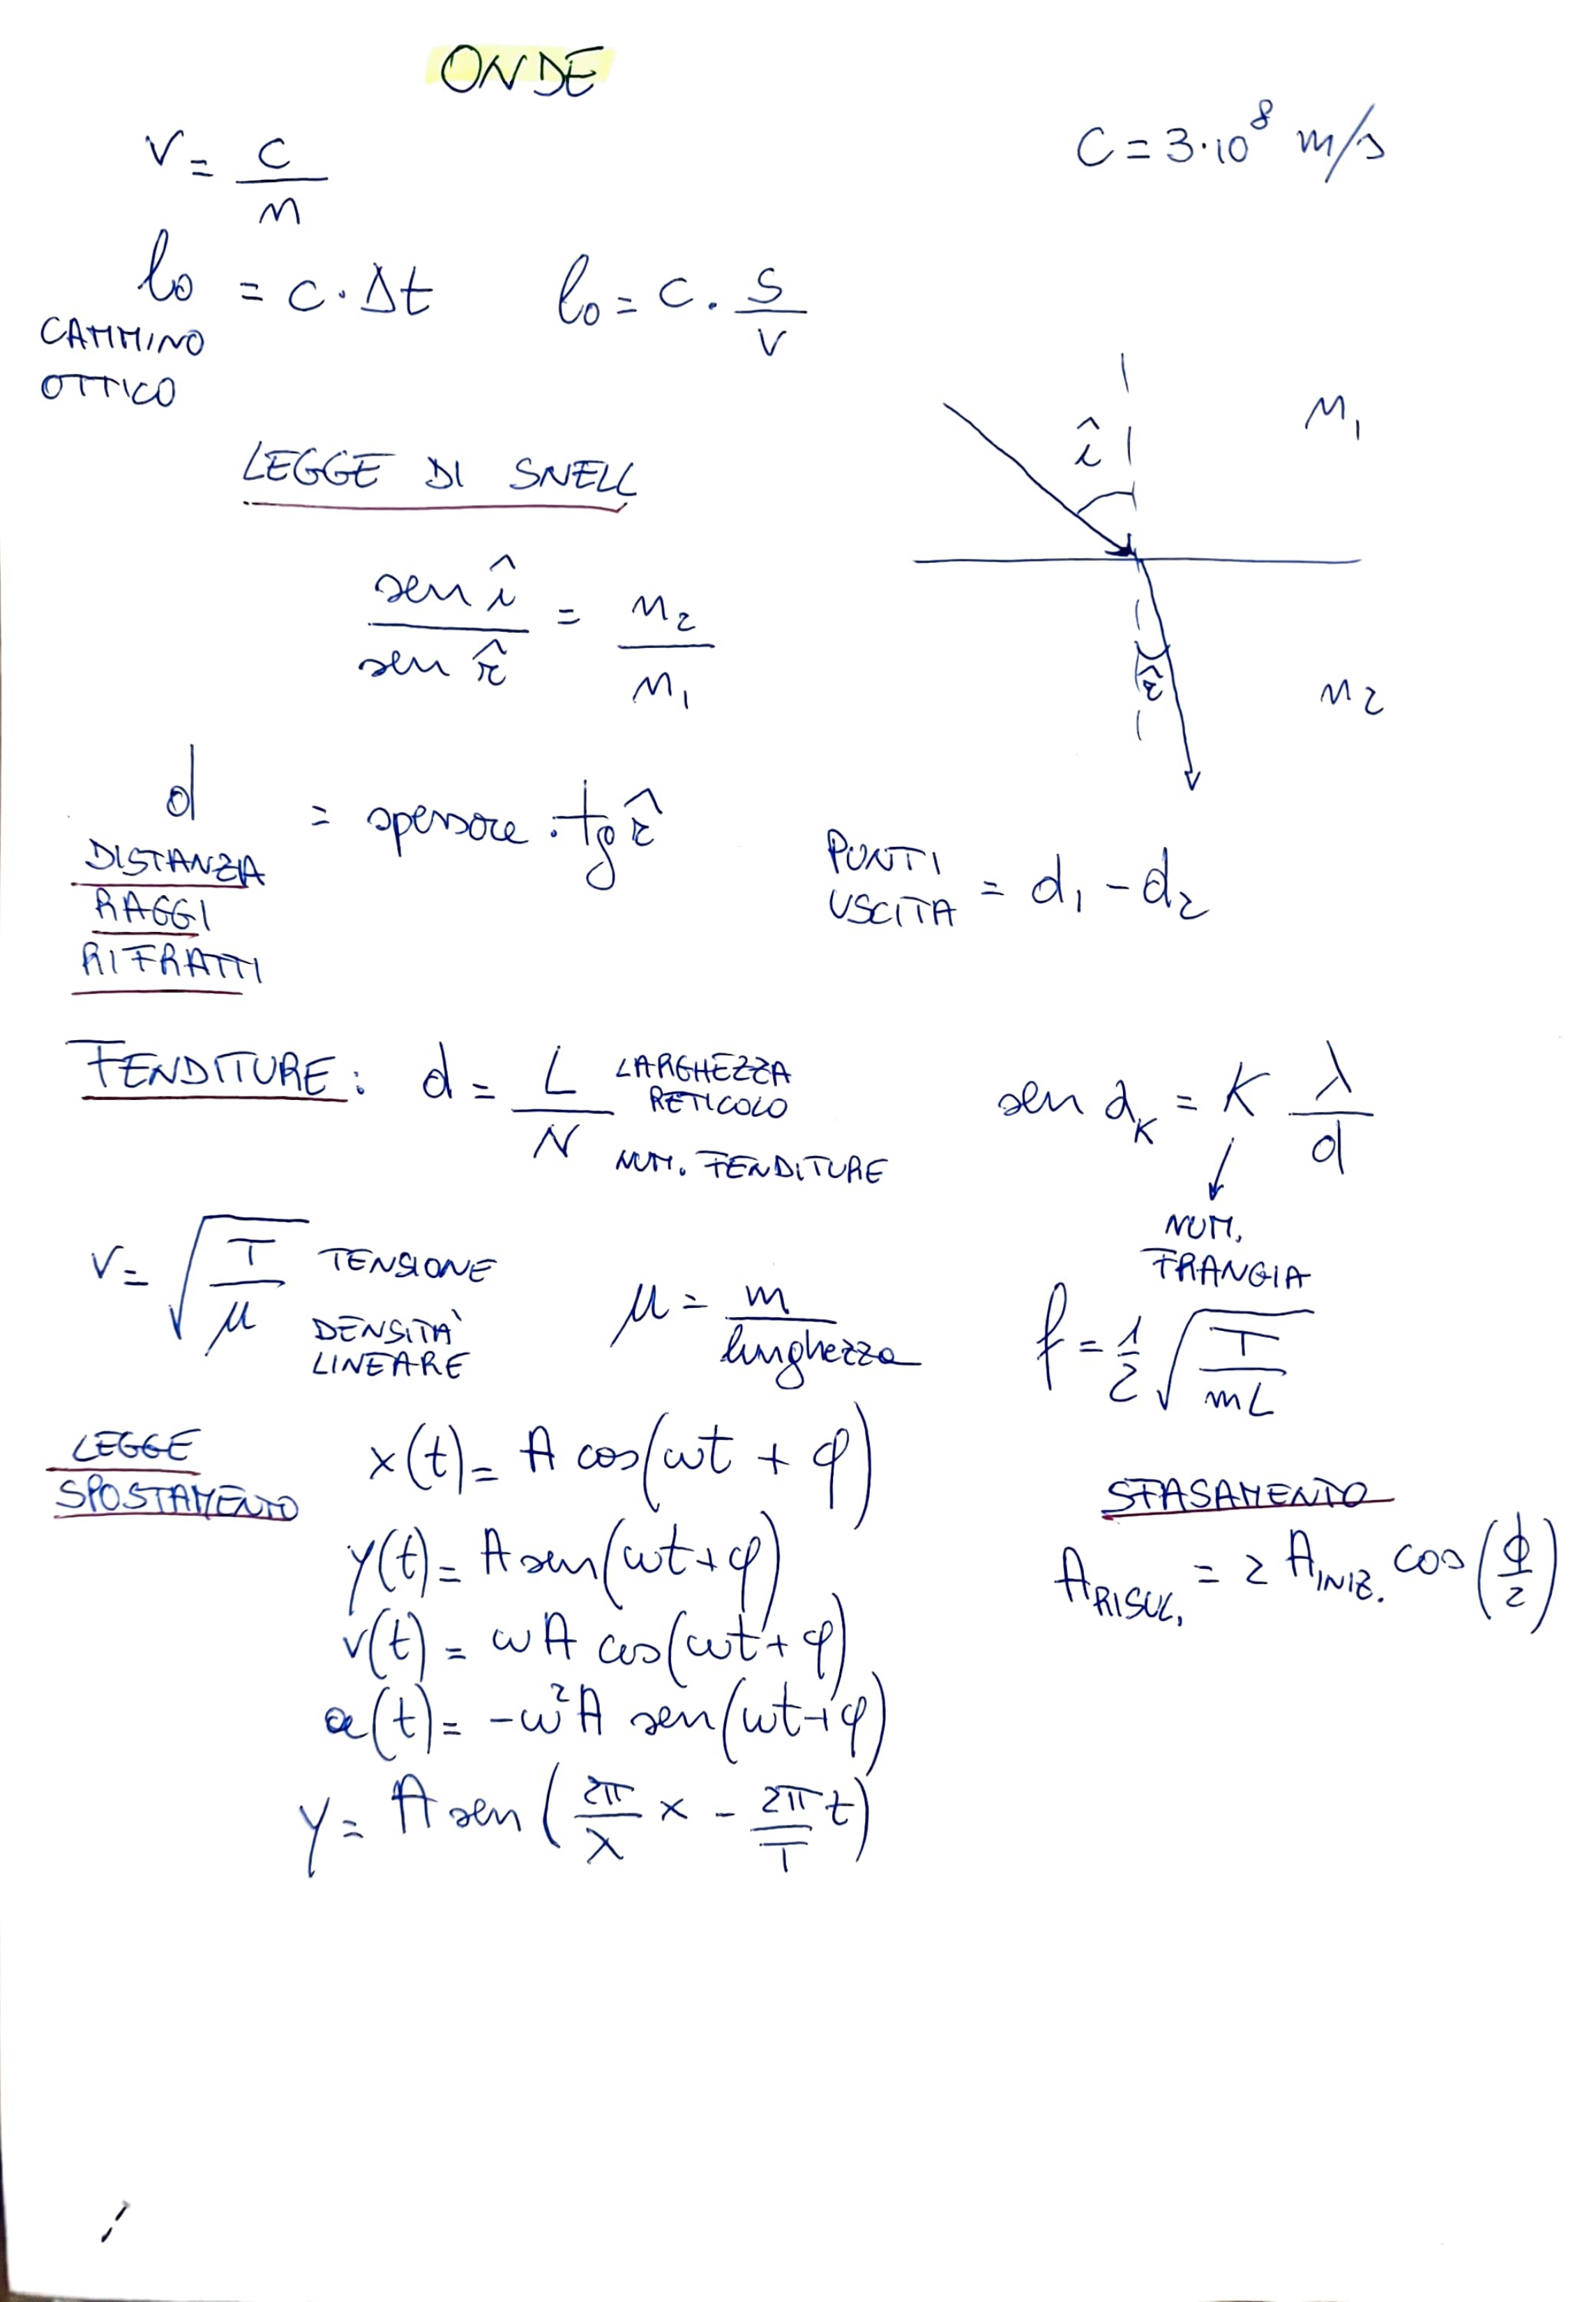 ONDE
v = c/n
c = 3·10⁸ m/s
l₀ = c·Δt
l₀ = c·s/v
CAMMINO
OTTICO
LEGGE DI SNELL
î
n₁
sen î / sen r̂ = n₂/n₁
r̂
n₂
d = spessore · tg r̂
DISTANZA
RAGGI
RIFRATTI
PUNTI
USCITA = d₁ - d₂
FENDITURE: d = L/N
LARGHEZZA
RETICOLO
NUM. FENDITURE
sen α_K = K λ/d
NUM.
FRANGIA
v = √(T/μ)
TENSIONE
DENSITÀ
LINEARE
μ = m/lunghezza
f = 1/2 √(T/mL)
LEGGE
SPOSTAMENTO
x(t) = A cos(ωt + φ)
y(t) = A sen(ωt + φ)
v(t) = ωA cos(ωt + φ)
a(t) = -ω²A sen(ωt + φ)
y = A sen(2π/λ x - 2π/T t)
SFASAMENTO
A_RISUL. = 2 A_INIZ. cos(ϕ/2)